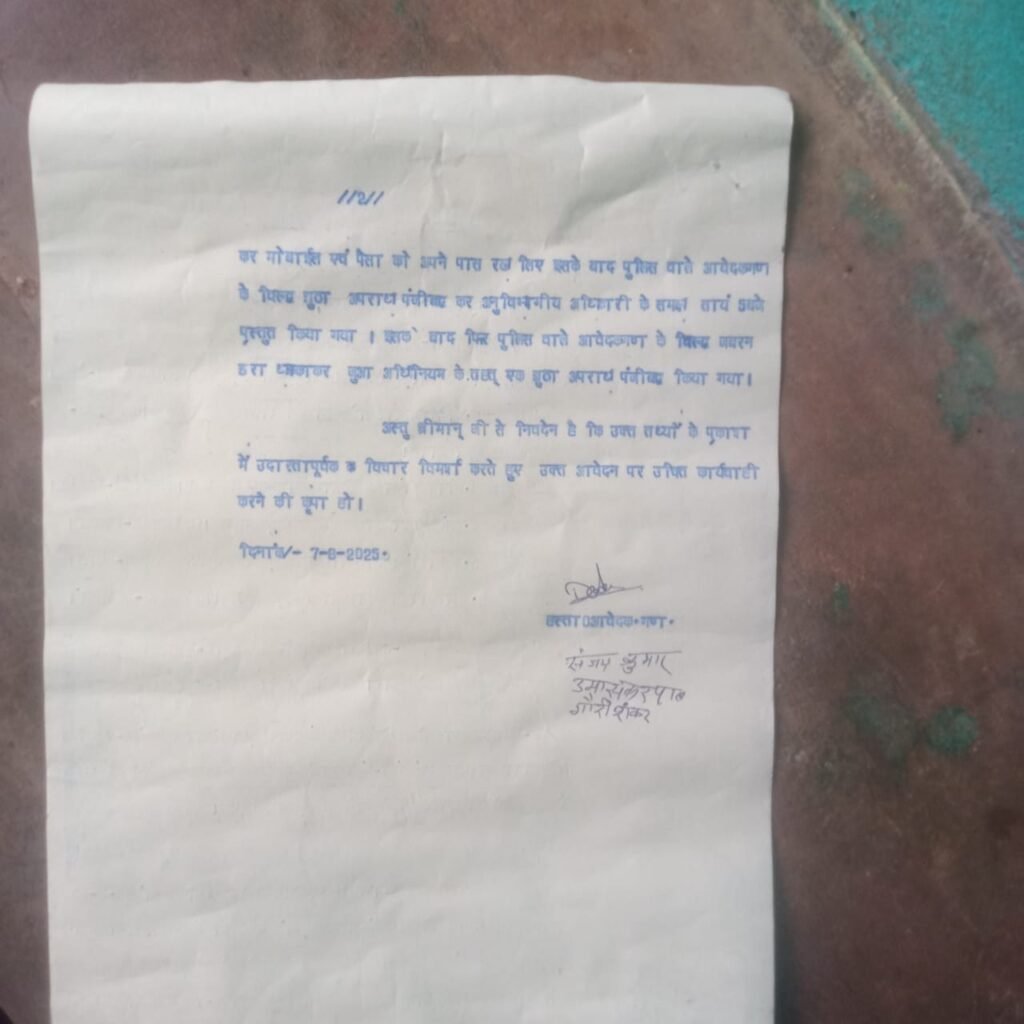 //2//
कर मोबाईल एवं पैसा को अपने पास रख लिए इसके बाद पुलिस वाले आवेदकगण
के विरुद्ध झुठा अपराध पंजीबद्ध कर अनुविभागीय अधिकारी के समक्ष सायं 5बजे
प्रस्तुत किया गया । इसके बाद फिर पुलिस वाले आवेदकगण के विरुद्ध जबरन
डरा धमकाकर जुआ अधिनियम के तहत् एक झुठा अपराध पंजीबद्ध किया गया।
अस्तु श्रीमान् जी से निवेदन है कि उक्त तथ्यों के प्रकाश
में उदारतापूर्वक विचार विमर्श करते हुए उक्त आवेदन पर उचित कार्यवाही
करने की कृपा हो।
दिनांक/- 7-8-2025.
हस्ता0आवेदक.गण.
संजय कुमार
उमाशंकर पाल
गौरीशंकर